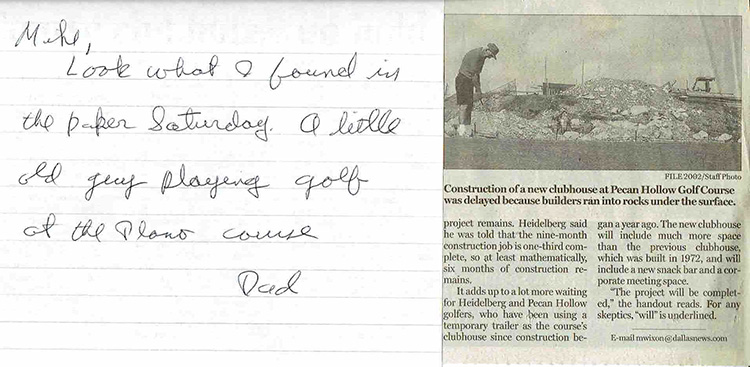 Mike,
Look what I found in
the paper Saturday. A little
old guy playing golf
at the Plano course
Dad
FILE 2002/Staff Photo
Construction of a new clubhouse at Pecan Hollow Golf Course
was delayed because builders ran into rocks under the surface.
project remains. Heidelberg said
he was told that the nine-month
construction job is one-third com-
plete, so at least mathematically,
six months of construction re-
mains.
It adds up to a lot more waiting
for Heidelberg and Pecan Hollow
golfers, who have been using a
temporary trailer as the course's
clubhouse since construction be-
gan a year ago. The new clubhouse
will include much more space
than the previous clubhouse,
which was built in 1972, and will
include a new snack bar and a cor-
porate meeting space.
"The project will be complet-
ed," the handout reads. For any
skeptics, "will" is underlined.
E-mail mwixon@dallasnews.com